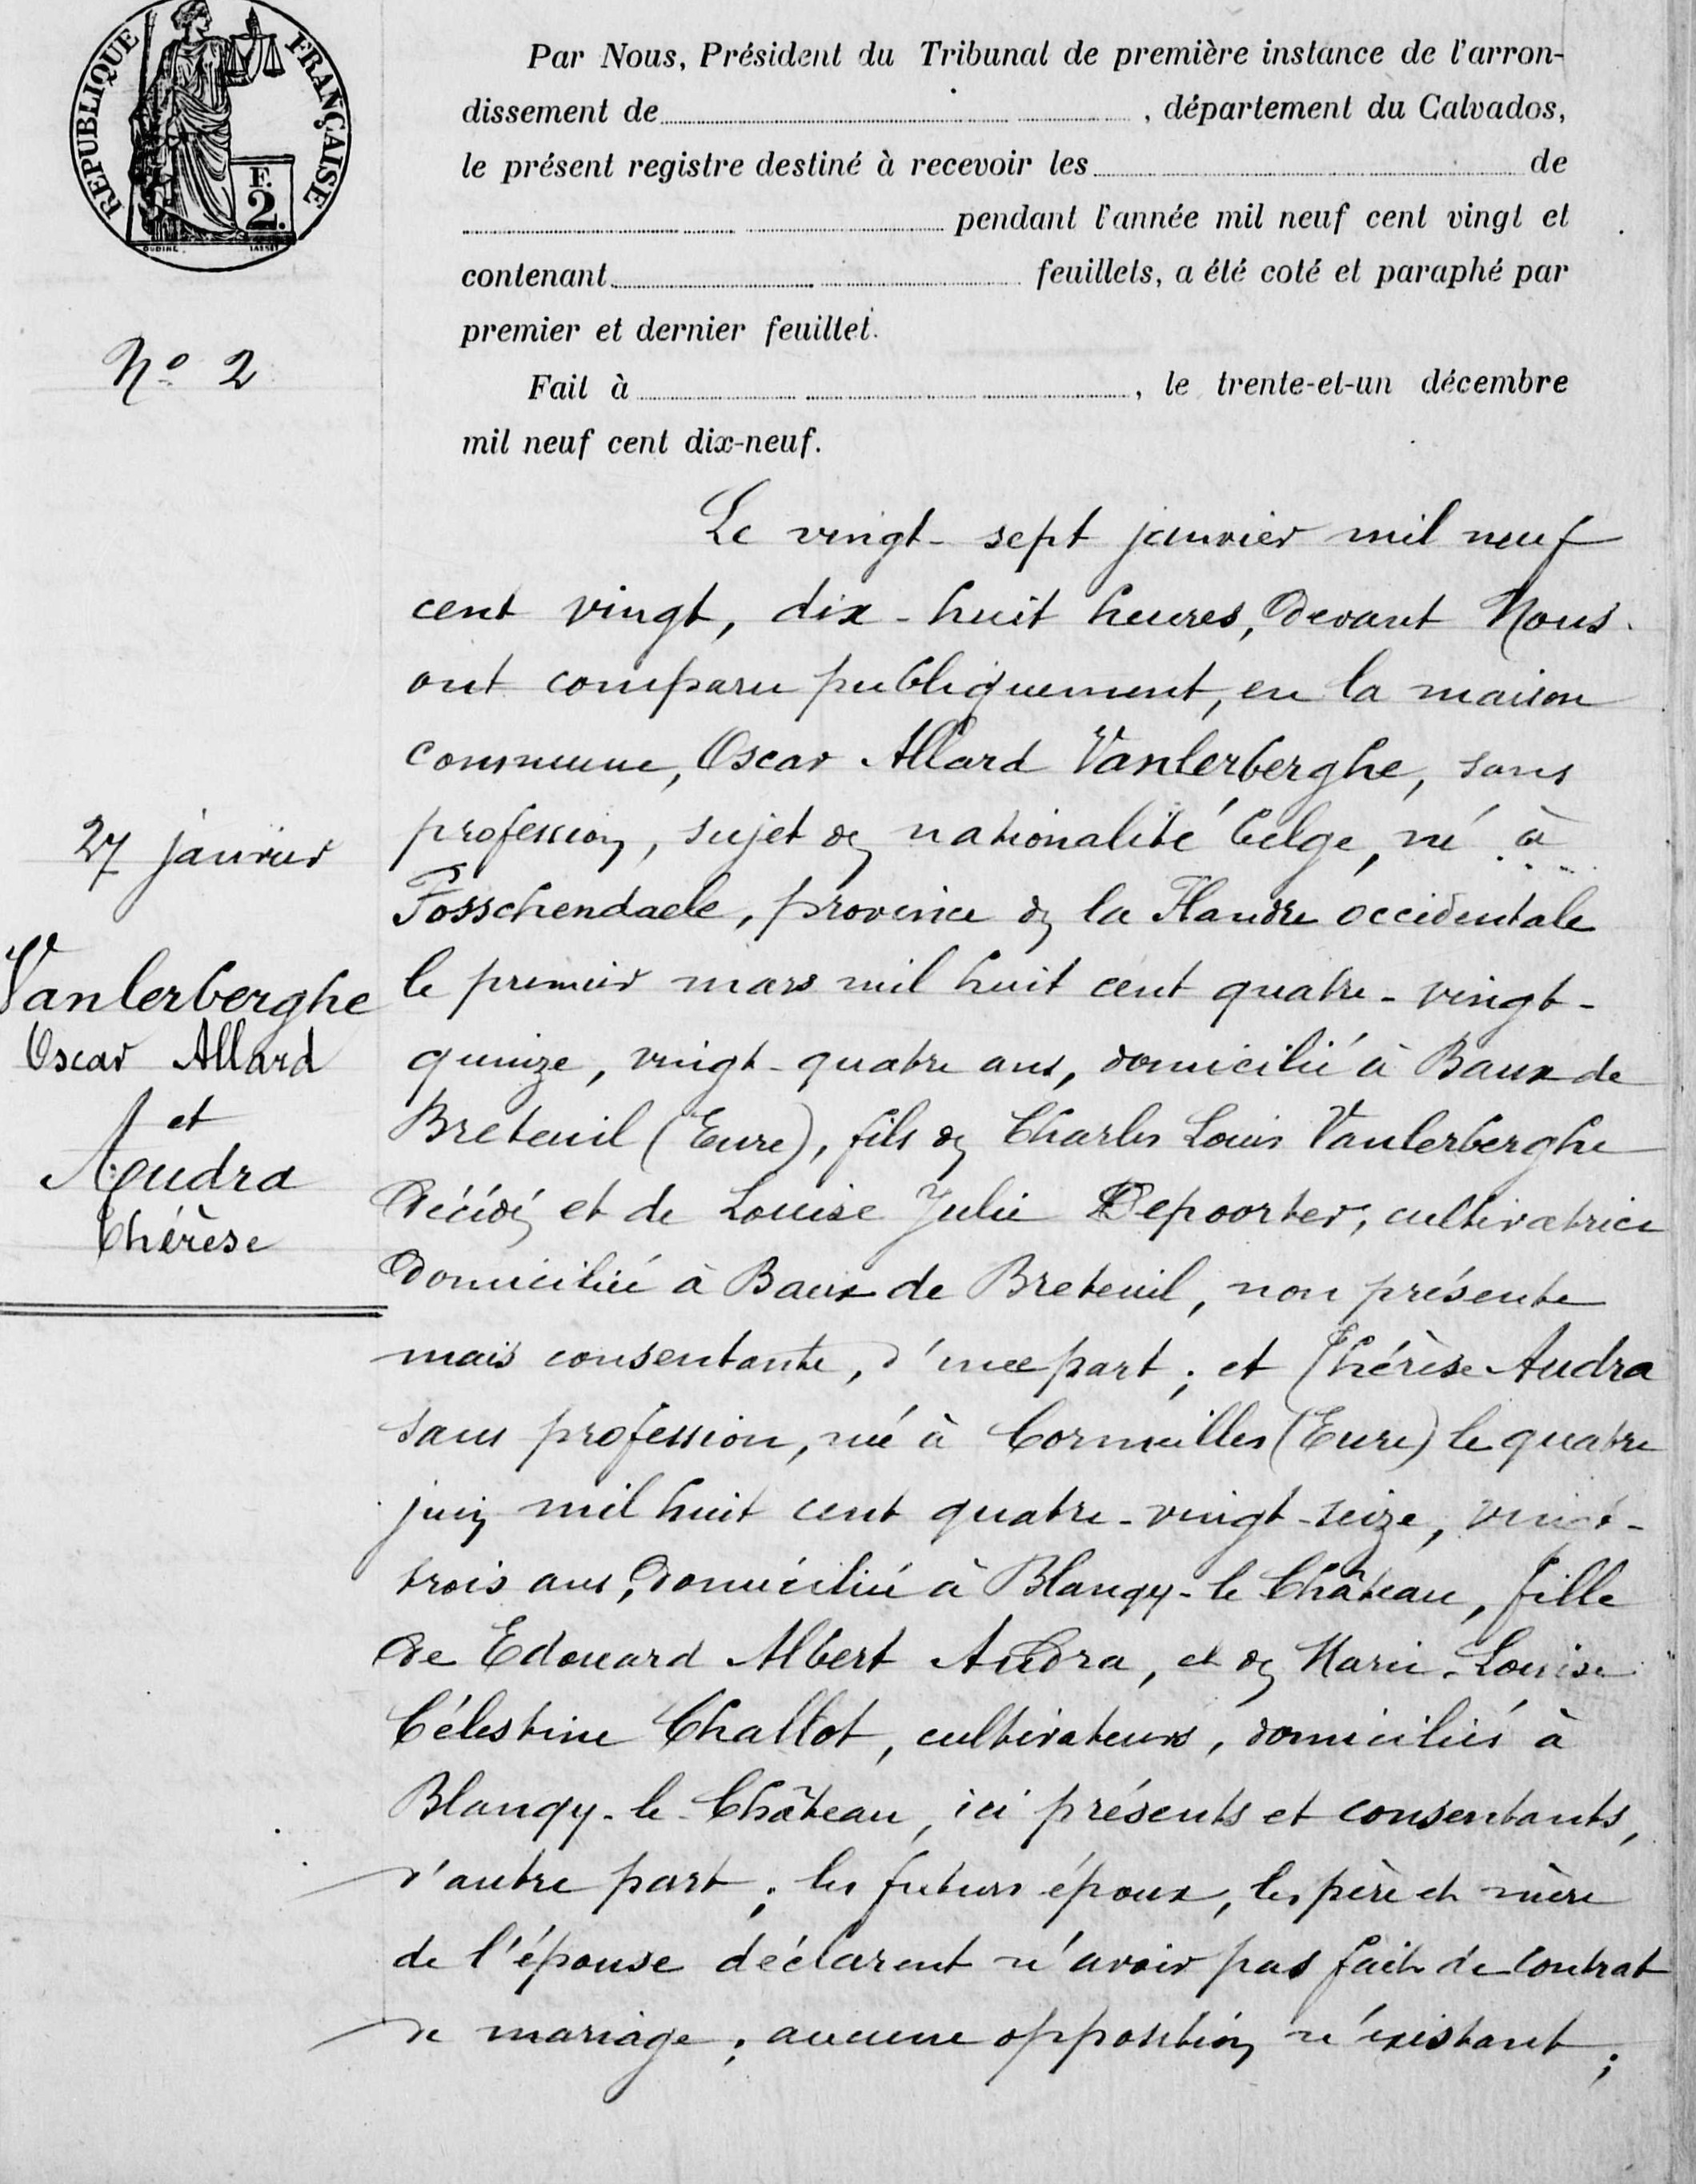 REPUBLIQUE FRANÇAISE
F.
2.
Par Nous, Président du Tribunal de première instance de l'arron-
dissement de , département du Calvados,
le présent registre destiné à recevoir les de
pendant l'année mil neuf cent vingt et
contenant feuillets, a été coté et paraphé par
premier et dernier feuillet.
Fait à , le trente-et-un décembre
mil neuf cent dix-neuf.
Nº 2
27 janvier
Vanlerberghe
Oscar Allard
et
Audra
Thérèse
Le vingt-sept janvier mil neuf
cent vingt, dix-huit heures, devant Nous
ont comparu publiquement, en la maison
commune, Oscar Allard Vanlerberghe, sans
profession, sujet de nationalité belge, né à
Posschendaele, province de la Flandre occidentale
le premier mars mil huit cent quatre-vingt-
quinze, vingt-quatre ans, domicilié à Baux de
Breteuil (Eure), fils de Charles Louis Vanlerberghe
décédé et de Louise Julie Depoorter, cultivatrice
domiciliée à Baux de Breteuil, non présente
mais consentante, d'une part ; et Thérèse Audra
sans profession, née à Cormeilles (Eure) le quatre
juin mil huit cent quatre-vingt-seize, vingt-
trois ans, domiciliée à Blangy-le Château, fille
de Edouard Albert Audra, et de Marie-Louise
Célestine Challot, cultivateurs, domiciliés à
Blangy-le-Château, ici présents et consentants,
d'autre part ; les futurs époux, les père et mère
de l'épouse déclarent n'avoir pas fait de contrat
de mariage ; aucune opposition n'existant ;